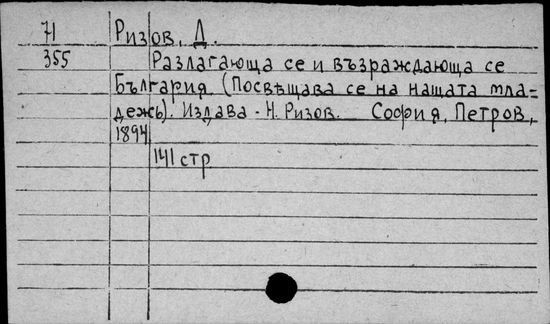 71 Ризов, Д.
355 Разлагающа се и възраждающа се
България (Посвѣщава се на нащата мла=
дежь). Издава - Н. Ризов. София, Петров,
1894
141 стр